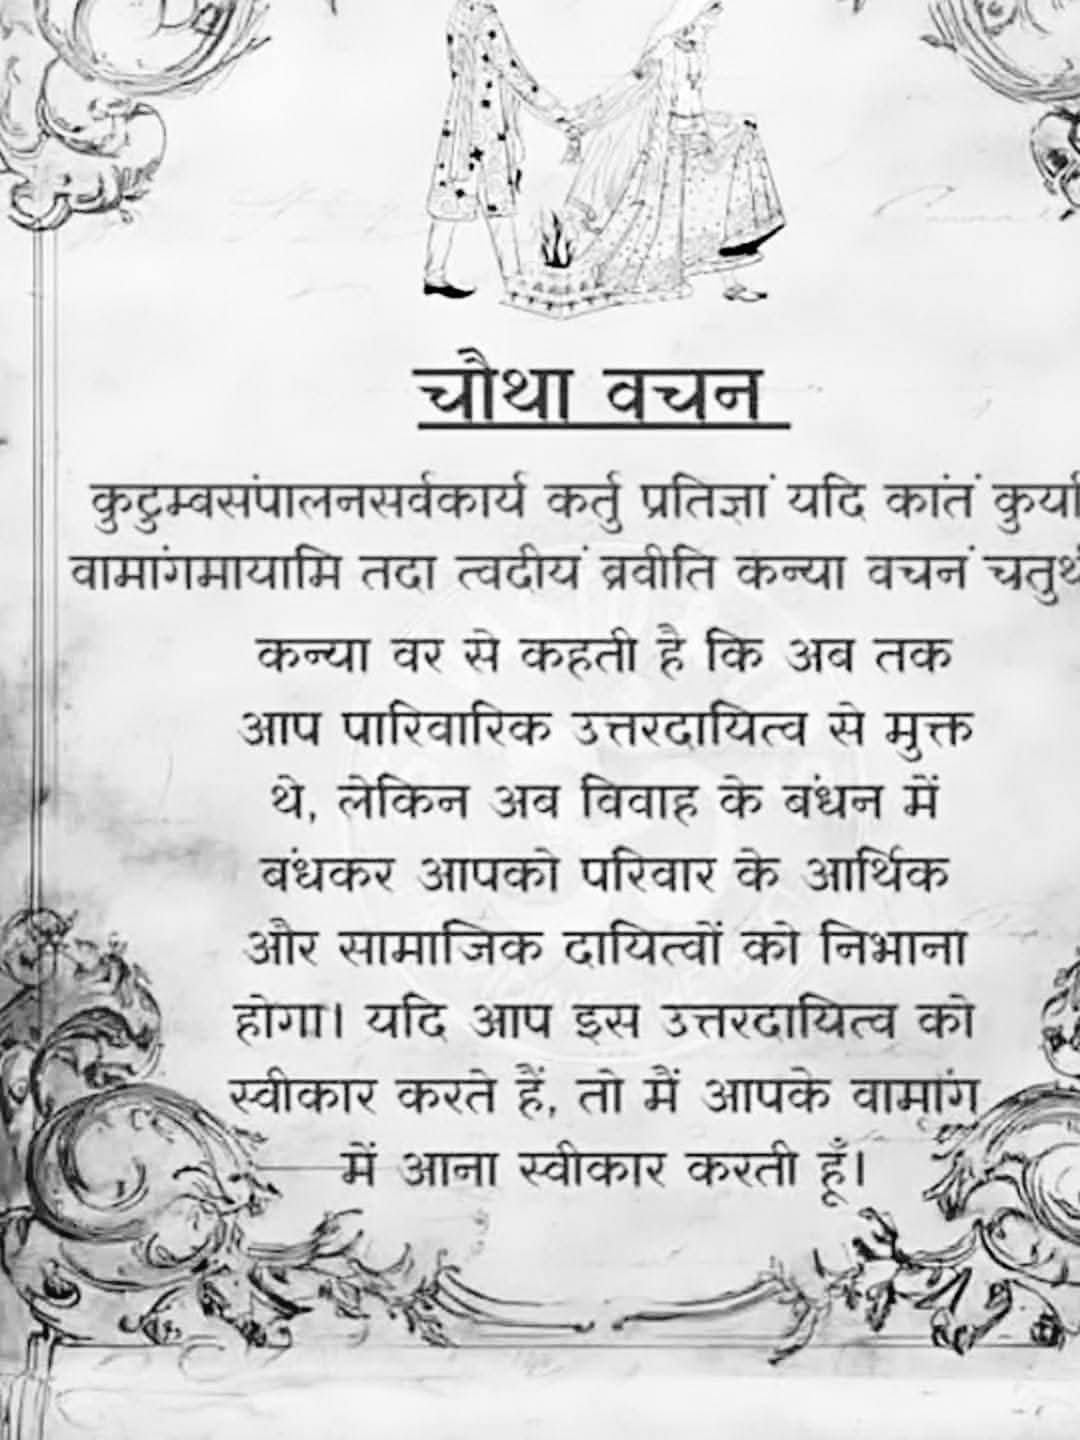 चौथा वचन
कुटुम्वसंपालनसर्वकार्य कर्तु प्रतिज्ञां यदि कांतं
वामांगमायामि तदा त्वदीयं व्रवीति कन्या वचनं
कन्या वर से कहती है कि अब तक
आप पारिवारिक उत्तरदायित्व से मुक्त
थे, लेकिन अब विवाह के बंधन में
बंधकर आपको परिवार के आर्थिक
और सामाजिक दायित्वों को निभाना
होगा। यदि आप इस उत्तरदायित्व को
स्वीकार करते हैं, तो मैं आपके वामांग
में आना स्वीकार करती हूँ।